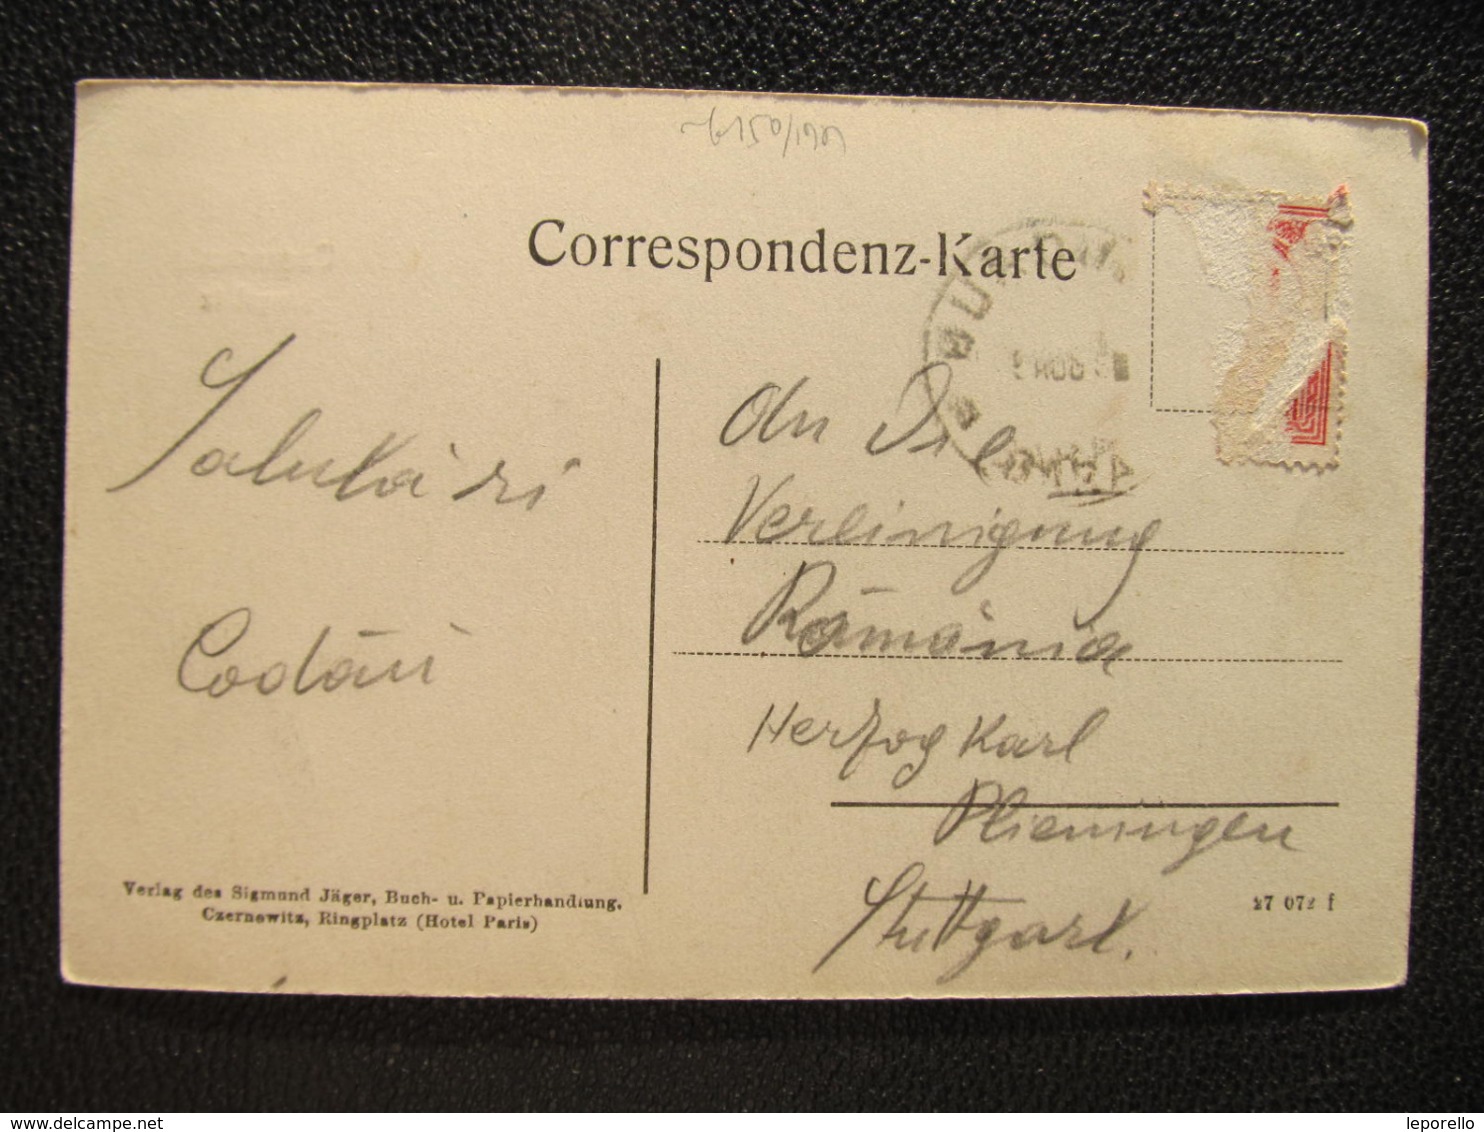 Correspondenz-Karte
Salutări
Codău
An Die
Vereinigung
România
Herzog Karl
Plieningen
Stuttgart.
Verlag des Sigmund Jäger, Buch- u. Papierhandlung,
Czernowitz, Ringplatz (Hotel Paris)
27 072 f
leporello